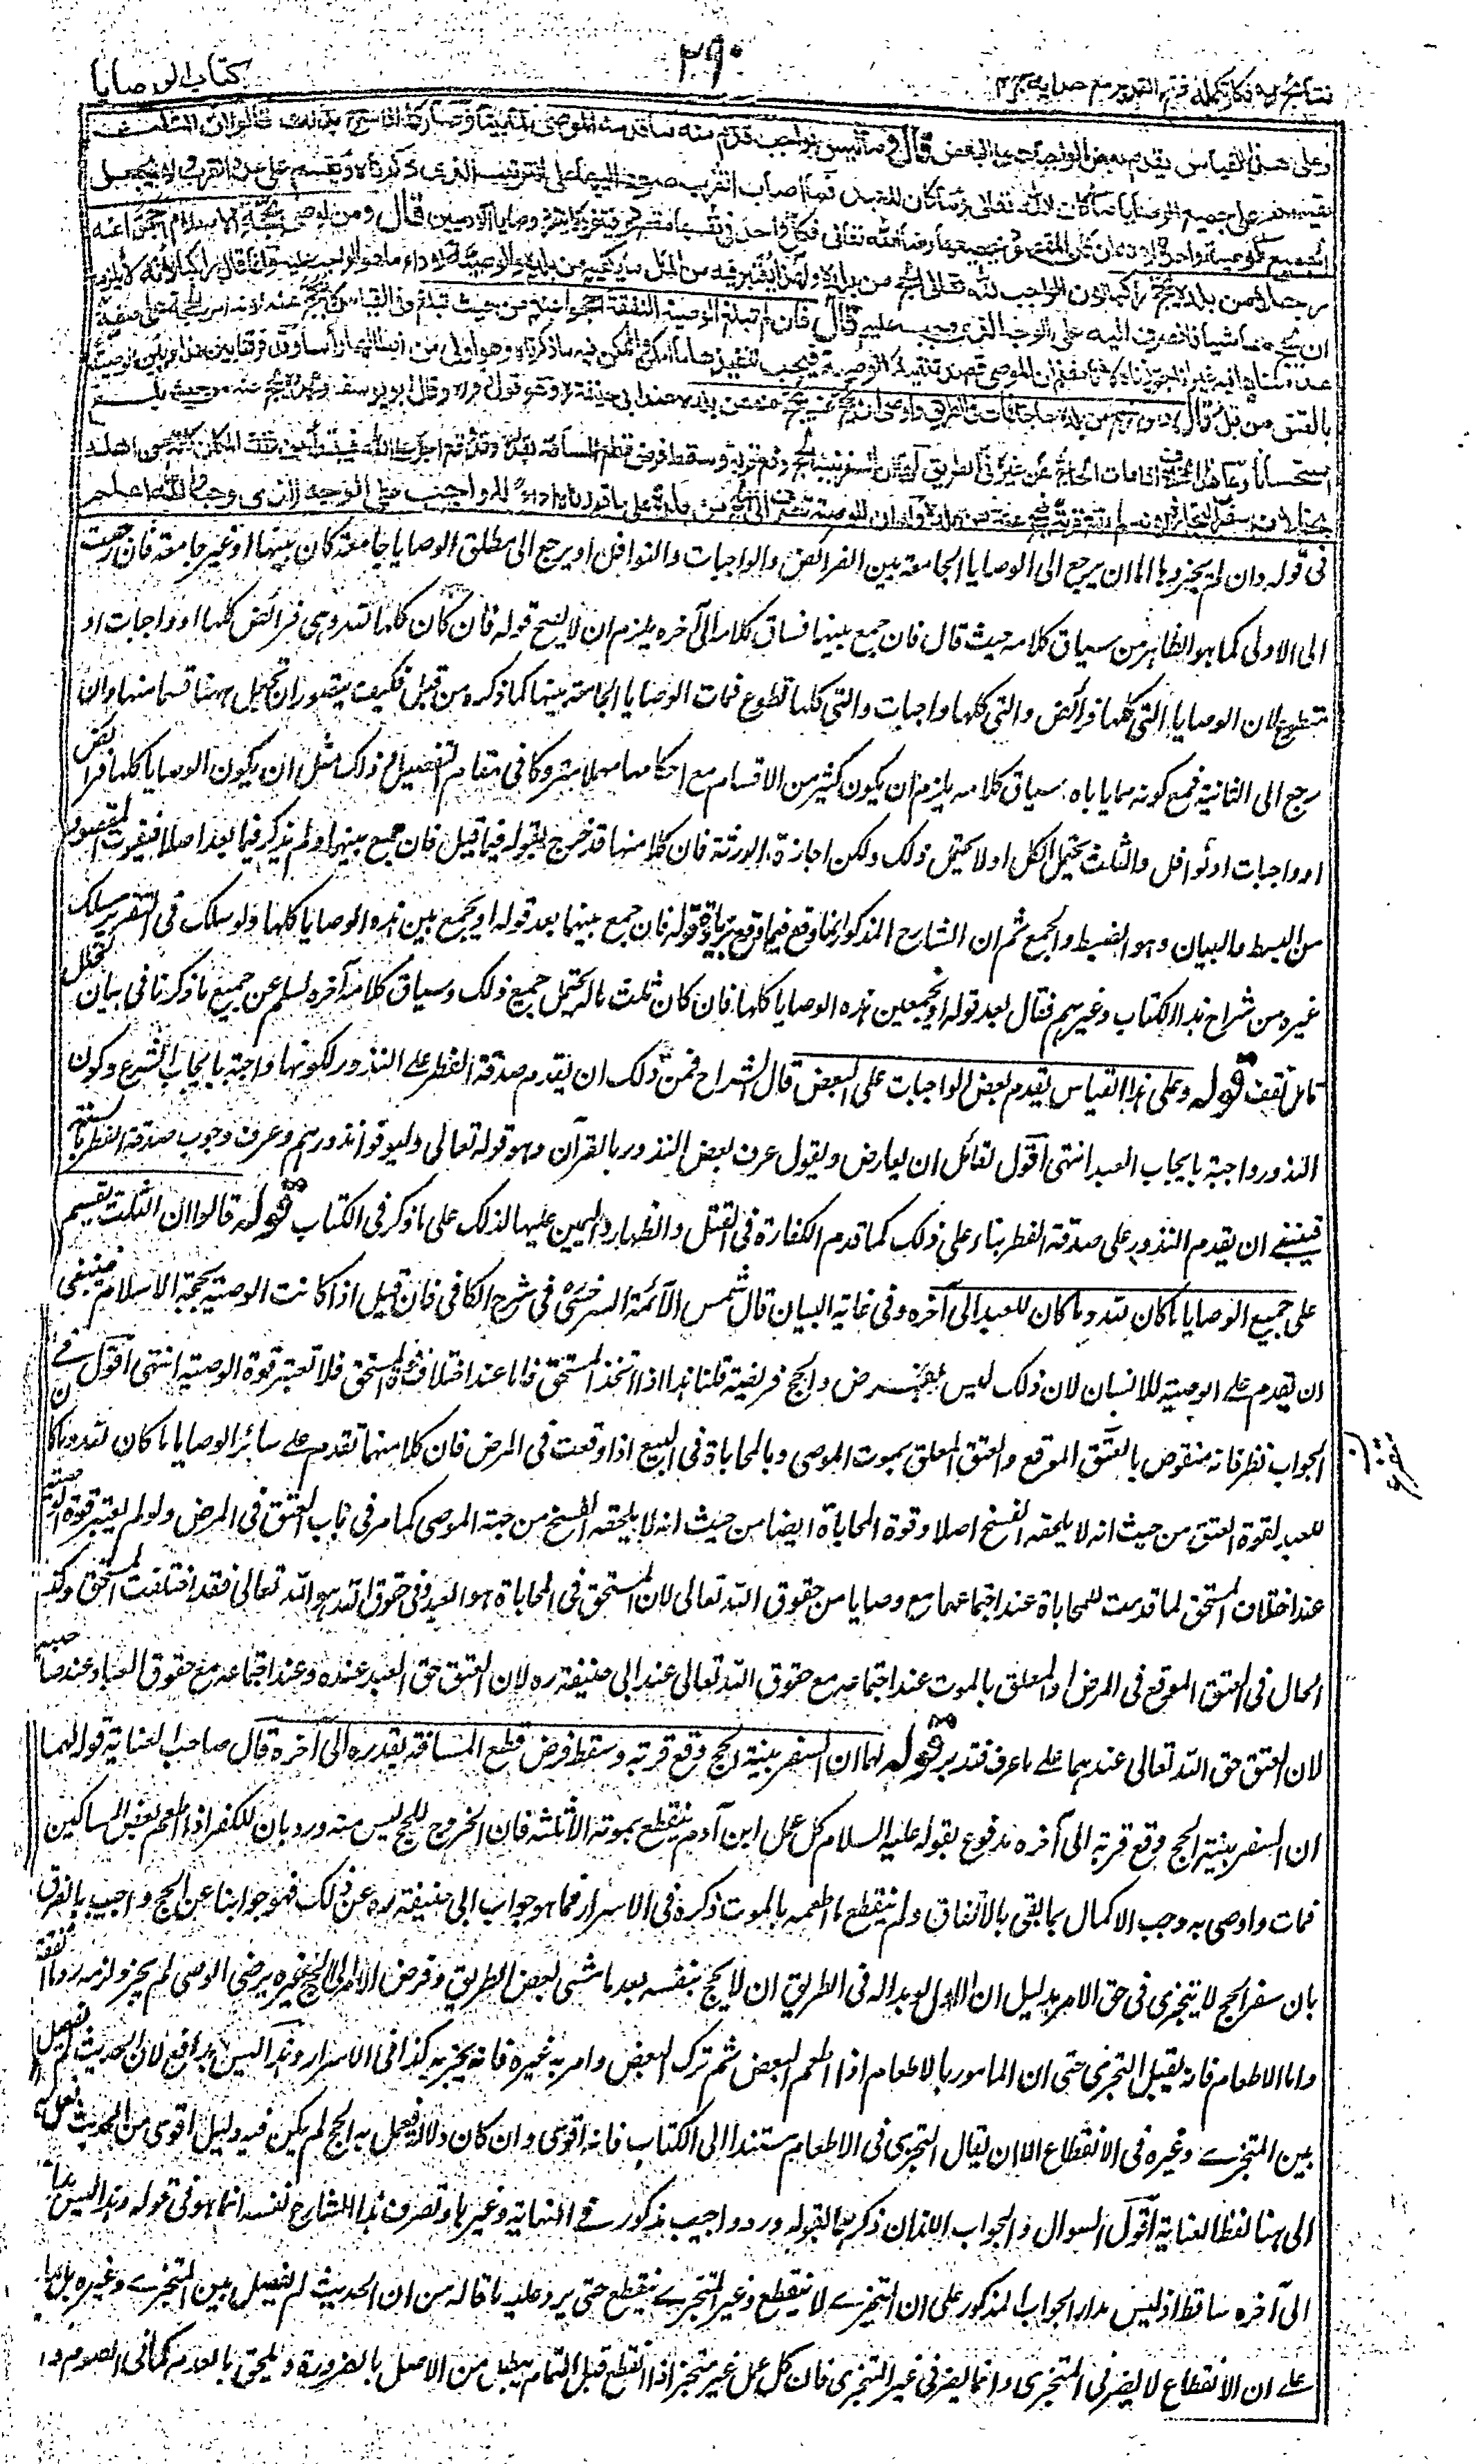 نتائج الافكار تكملة فتح القدير مع هداية ج ٤
٣٩٠
كتاب الوصايا
وعلى هذا القياس يقدم بعض الواجبات على البعض قال وما ليس بواجب قدم منه ما قدمه الموصى لما بينا وصار كما اذا صرح بذلك قالوا ان الثلث
يقسم على جميع الوصايا ما كان لله تعالى وما كان للعبد فما اصاب القرب صرف اليها على الترتيب الذى ذكرناه ويقسم على عدد القرب ولا يجعل
الجميع كوصية واحدة لانه ان كان المقصود بجميعها رضا الله تعالى فكل واحدة فى نفسها مقصود فتنفرد كما تنفرد وصايا الآدميين قال ومن اوصى بحجة الاسلام احجوا عنه
رجلا من بلده يحج راكبا لان الواجب لله تعالى الحج من بلده ولهذا يعتبر فيه من المال ما يكفيه من بلده والوصية لاداء ما هو الواجب عليه وانما قال راكبا لانه لا يلزمه
ان يحج ماشيا فانصرف اليه على الوجه الذى وجب عليه قال فان لم تبلغ الوصية النفقة احجوا عنه من حيث تبلغ وفى القياس لا يحج عنه لانه امر بالحجة على صفة
عدمناها فيه غير انا جوزناه لانا نعلم ان الموصى قصد تنفيذ الوصية فيجب تنفيذها ما امكن والممكن فيه ما ذكرناه وهو اولى من ابطالها رأسا وقد فرقنا بين هذا وبين الوصية
بالعتق من قبل قال ومن خرج من بلده حاجا فمات فى الطريق واوصى ان يحج عنه يحج عنه من بلده عند ابى حنيفة ره وهو قول زفر ره وقال ابو يوسف ومحمد ره يحج عنه من حيث بلغ
استحسانا وعلى هذا الخلاف اذا مات الحاج عن غيره فى الطريق لهما ان السفر بنية الحج وقع قربة وسقط فرض قطع المسافة بقدره وقد وقع اجره على الله فيبتدأ من ذلك المكان كانه من اهله
بخلاف سفر التجارة لانه لم يقع قربة فيحج عنه من بلده وله ان الوصية تنصرف الى الحج من بلده على ما قررناه اداء للواجب على الوجه الذى وجب والله اعلم
فى قوله وان لم يجيزوها اما ان يرجع الى الوصايا الجامعة بين الفرائض والواجبات والنوافل او يرجع الى مطلق الوصايا جامعة كان بينها او غير جامعة فان رجعت
الى الاولى كما هو الظاهر من سياق كلامه حيث قال فان جمع بينها فساق كلامه الى آخره يلزم ان لا يصح قوله فان كان كلها لله وهى فرائض كلها او واجبات او
تطوع لان الوصايا التى كلها فرائض والتى كلها واجبات والتى كلها تطوع فمات الوصايا الجامعة بينها كما ذكره من قبل فكيف يتصور ان تجعل ههنا قسما منها وان
رجع الى الثانية فمع كونه مما ياباه سياق كلامه يلزم ان يكون كثير من الاقسام مع احكامها مهملا متروكا فى مقام التفصيل وذلك مثل ان يكون الوصايا كلها فرائض
او واجبات او نوافل والثلث يحتمل الكل او لا يحتمل ذلك ولكن اجازة الورثة فان كلا منها قد خرج بقوله فيما قيل فان جمع بينها ولم يذكر فيما بعد اصلا فيفوت المقصود
من البسط والبيان وهو الضبط والجمع ثم ان الشارح المذكور انما وقع فيما وقع بزيادة قوله فان جمع بينها بعد قوله او يجمع بين هذه الوصايا كلها ولو سلك فى التقرير مسلك
غيره من شراح هذا الكتاب وغيرهم فقال بعد قوله او يجمع بين هذه الوصايا كلها فان كان ثلث ماله يحتمل جميع ذلك وسياق كلامه آخره لسلم عن جميع ما ذكرنا فى بيان الخلل
تامل تقف قوله وعلى هذا القياس يقدم بعض الواجبات على البعض قال الشراح فمن ذلك ان يقدم صدقة الفطر على النذور لكونها واجبة بايجاب الشرع وكون
النذور واجبة بايجاب العبد انتهى اقول لقائل ان يعارض ويقول عرف بعض النذور بالقرآن وهو قوله تعالى وليوفوا نذورهم وعرف وجوب صدقة الفطر بالسنة
فينبغى ان يقدم النذور على صدقة الفطر بناء على ذلك كما قدم الكفارة فى القتل والظهار واليمين عليها لذلك على ما ذكر فى الكتاب قوله قالوا ان الثلث يقسم
على جميع الوصايا ما كان لله وما كان للعبد الى آخره وفى غاية البيان قال شمس الائمة السرخسى فى شرح الكافى فان قيل اذا كانت الوصية بحجة الاسلام فينبغى
ان يقدم على الوصية للانسان لان ذلك ليس بفرض والحج فريضة قلنا هذا اذا اتحد المستحق فاما عند اختلاف المستحق فلا تعتبر قوة الوصية انتهى اقول فى
الجواب نظر فانه منقوض بالعتق الموقع والعتق المعلق بموت الموصى وبالمحاباة فى البيع اذا وقعت فى المرض فان كلا منها تقدم على سائر الوصايا ما كان لله وما كان
للعبد لقوة العتق من حيث انه لا يلحقه الفسخ اصلا وقوة المحاباة ايضا من حيث انه لا يلحقه الفسخ من جهة الموصى كما مر فى باب العتق فى المرض ولو لم يعتبر قوة الوصية
عند اختلاف المستحق لما قدمت المحاباة عند اجتماعها مع وصايا من حقوق الله تعالى لان المستحق فى المحاباة هو العبد وفى حقوق الله هو الله تعالى فقد اختلفت المستحق وكذا
الحال فى العتق الموقع فى المرض او المعلق بالموت عند اجتماعه مع حقوق الله تعالى عند ابى حنيفة ره لان العتق حق العبد عنده وعند اجتماعه مع حقوق العباد عند صاحبيه
لان العتق حق الله تعالى عندهما على ما عرف فتدبر قوله لهما ان السفر بنية الحج وقع قربة وسقط فرض قطع المسافة بقدره الى آخره قال صاحب العناية قوله لهما
ان السفر بنية الحج وقع قربة الى آخره مدفوع بقوله عليه السلام كل عمل ابن آدم ينقطع بموته الا ثلثة فان الخروج للحج ليس منه ورد بان للكفر اذا اطعم بعض المساكين
فمات واوصى به وجب الاكمال بما بقى بالاتفاق ولم ينقطع ما اطعمه بالموت ذكره فى الاسرار فما هو جواب ابى حنيفة ره عن ذلك فهو جوابنا عن الحج واجيب بالفرق
بان سفر الحج لا يتجزى فى حق الامر بدليل ان الاول لو بدا له فى الطريق ان لا يحج بنفسه بعد ما مشى بعض الطريق وفوض الامر الى غيره برضى الوصى لم يجز ولزمه رد النفقة
واما الاطعام فانه يقبل التجزى حتى ان المامور بالاطعام اذا اطعم البعض ثم ترك البعض وامر به غيره فانه يجزيه كذا فى الاسرار وهذا ليس بدافع لان الحديث لم يفصل
بين المتجزى وغيره فى الانقطاع الا ان يقال التجزى فى الاطعام مستندا الى الكتاب فانه اقوى وان كان دلالة فيعمل به الحج لم يكن فيه دليل اقوى من الحديث فعمل به
الى هنا لفظ العناية اقول السوال والجواب اللذان ذكرهما بقوله ورد واجيب مذكور فى النهاية وغيرها وتصرف هذا الشارح نفسه انما هو فى قوله وهذا ليس بدافع
الى آخره ساقط اذ ليس مدار الجواب المذكور على ان المتجزى لا ينقطع وغير المتجزى ينقطع حتى يرد عليه ما قاله من ان الحديث لم يفصل بين المتجزى وغيره بل مداره
على ان الانقطاع لا يضر فى المتجزى وانما يضر فى غير المتجزى فان كل عمل غير متجز اذا انقطع قبل التمام يبطل من الاصل بالضرورة ويلحق بالعدم كما فى الصوم وا